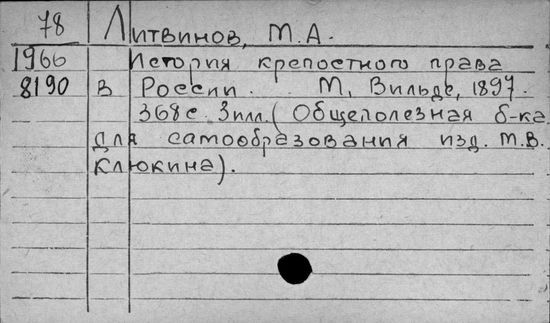 78 Литвинов, М.А.
1966 История крепостного права
8190 в России. М, Вильде, 1897.
368с. 3илл. (Общеполезная б-ка
для самообразования изд. М.В.
Клюкина).